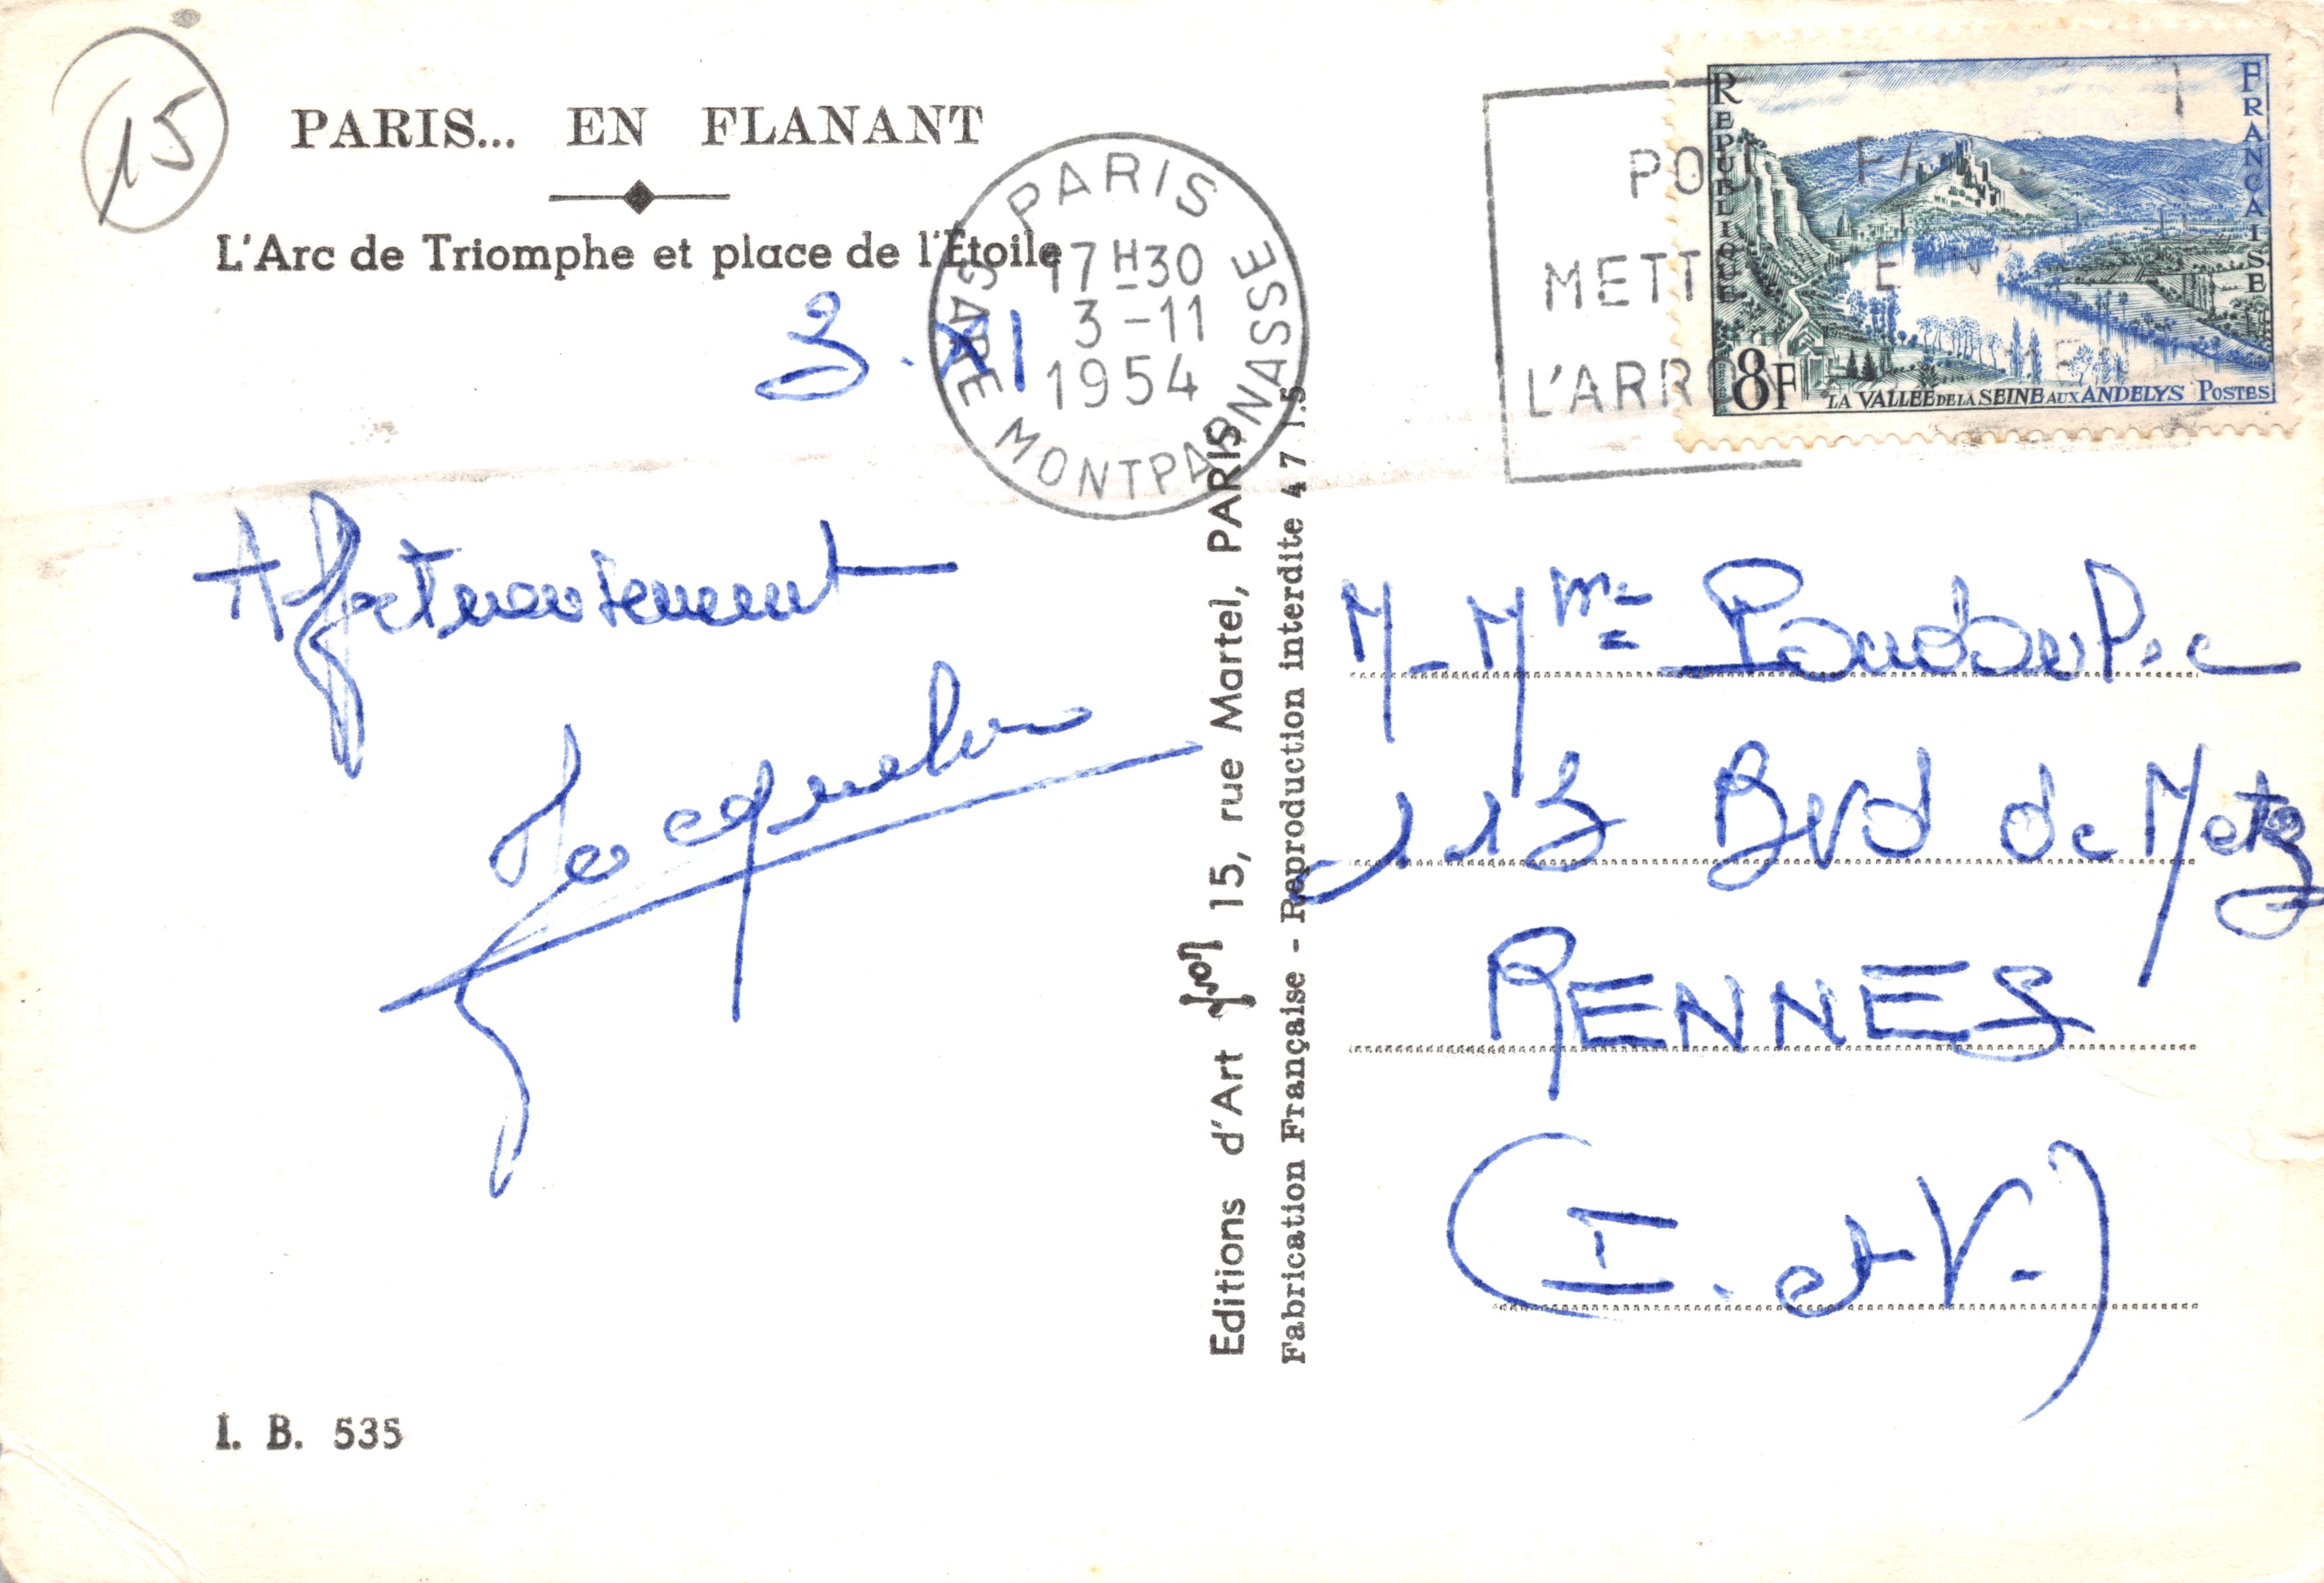 15
PARIS... EN FLANANT
L'Arc de Triomphe et place de l'Étoile
3.XI
PARIS
GARE MONTPARNASSE
17H30
3-11
1954
METT
L'ARRO
REPUBLIQUE
FRANCAISE
8F
LA VALLEE DE LA SEINE AUX ANDELYS POSTES
Affectueusement
Jacqueline
Editions d'Art yvon 15, rue Martel, PARIS
Fabrication Française - Reproduction interdite 4 7 1.5
M-Mme
113 Bvd de Metz
RENNES
(I. et V.)
I. B. 535